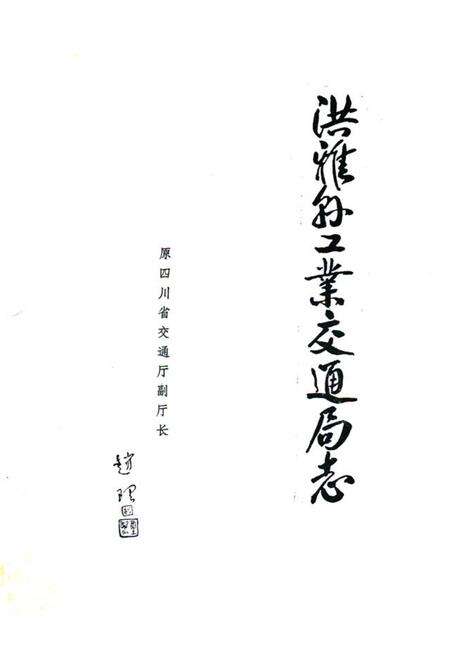 洪雅县工業交通局志
原四川省交通厅副厅长
赵理